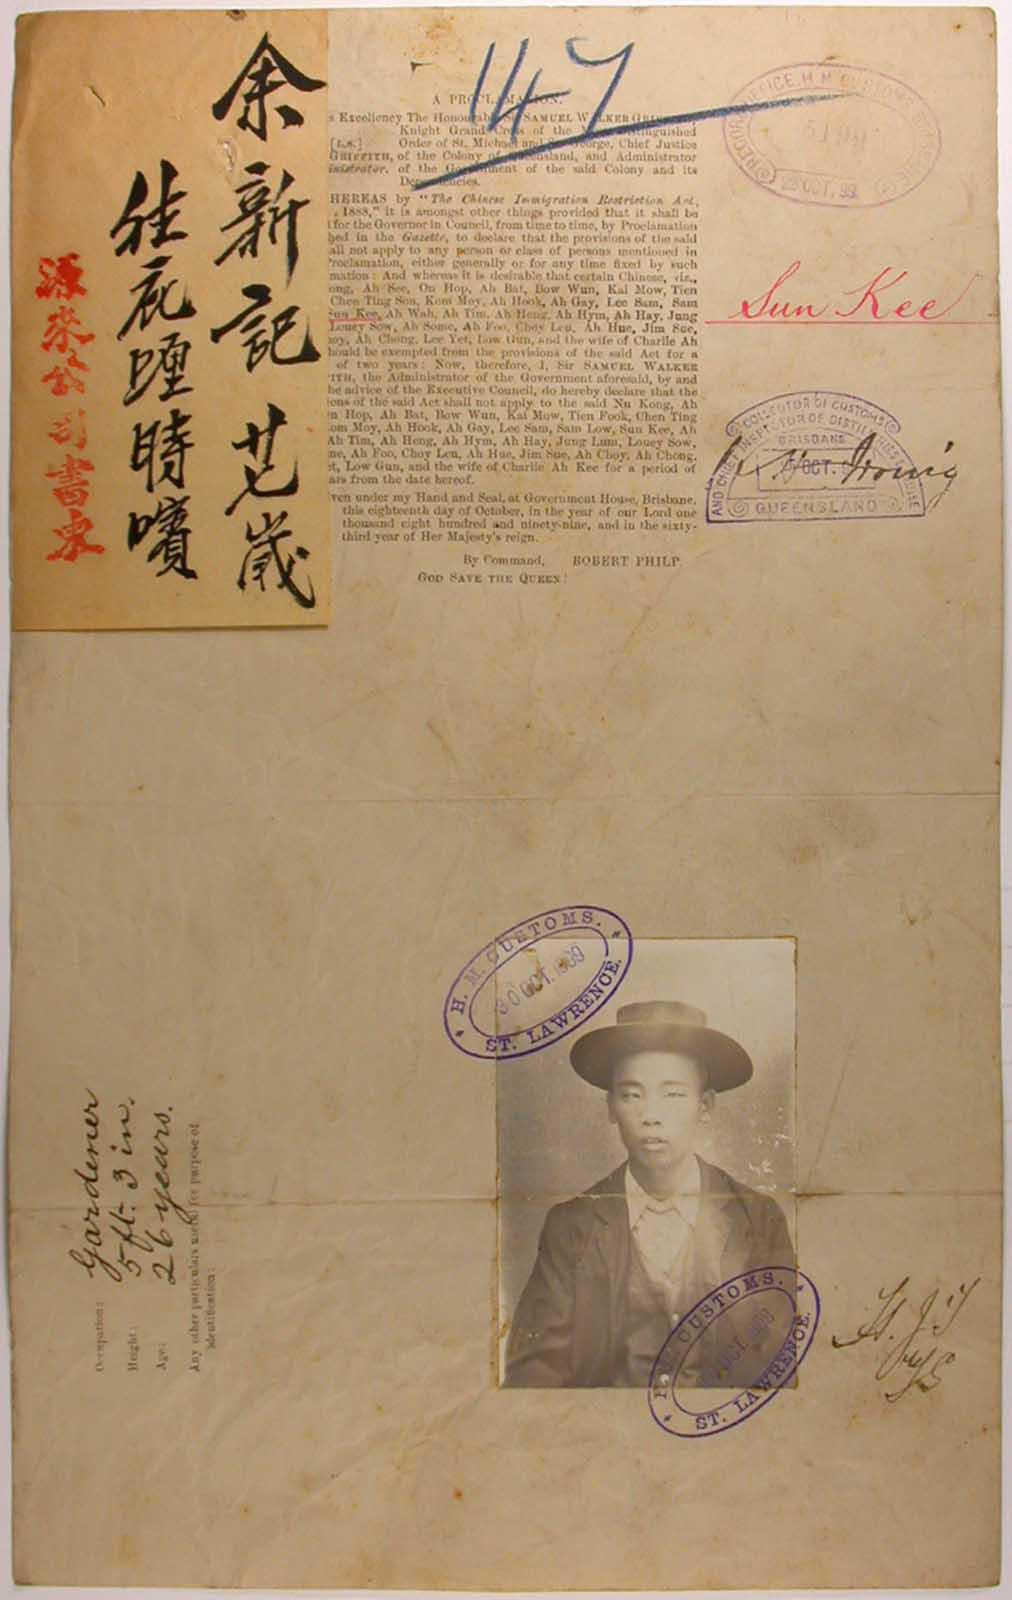 余新記 歲
住 時
源來公司書柬
147
A PROCLAMATION.
Excellency The Honourable Sir SAMUEL WALKER
Knight Grand Cross of the Most Distinguished
[L.S.] Order of St. Michael and St. George, Chief Justice
GRIFFITH, of the Colony of Queensland, and Administrator
of the Government of the said Colony and its
Dependencies.
HEREAS by "The Chinese Immigration Restriction Act,
1888," it is amongst other things provided that it shall be
for the Governor in Council, from time to time, by Proclamation
hed in the Gazette, to declare that the provisions of the said
all not apply to any person or class of persons mentioned in
roclamation, either generally or for any time fixed by such
mation: And whereas it is desirable that certain Chinese, viz.,
ong, Ah See, On Hop, Ah Bat, Bow Wun, Kai Mow, Tien
Chen Ting Son, Kom Moy, Ah Hook, Ah Gay, Lee Sam, Sam
Sun Kee, Ah Wah, Ah Tim, Ah Heng, Ah Hym, Ah Hay, Jung
Louey Sow, Ah Some, Ah Foo, Choy Leu, Ah Hue, Jim Sue,
hoy, Ah Chong, Lee Yet, Low Gun, and the wife of Charlie Ah
hould be exempted from the provisions of the said Act for a
of two years: Now, therefore, I, Sir SAMUEL WALKER
ITH, the Administrator of the Government aforesaid, by and
he advice of the Executive Council, do hereby declare that the
ions of the said Act shall not apply to the said Nu Kong, Ah
n Hop, Ah Bat, Bow Wun, Kai Mow, Tien Fook, Chen Ting
om Moy, Ah Hook, Ah Gay, Lee Sam, Sam Low, Sun Kee, Ah
Ah Tim, Ah Heng, Ah Hym, Ah Hay, Jung Lum, Louey Sow,
me, Ah Foo, Choy Leu, Ah Hue, Jim Sue, Ah Choy, Ah Chong,
et, Low Gun, and the wife of Charlie Ah Kee for a period of
ars from the date hereof.
ven under my Hand and Seal, at Government House, Brisbane,
this eighteenth day of October, in the year of our Lord one
thousand eight hundred and ninety-nine, and in the sixty-
third year of Her Majesty's reign.
By Command, ROBERT PHILP.
GOD SAVE THE QUEEN!
RECORD OFFICE, H. M. CUSTOMS
25 OCT. 99
Sun Kee
COLLECTOR OF CUSTOMS
AND CHIEF INSPECTOR OF DISTILLERIES & EXCISE
BRISBANE
OCT. 9
QUEENSLAND
Irving
H. M. CUSTOMS.
30 OCT. 1899
ST. LAWRENCE.
H. M. CUSTOMS.
OCT.
ST. LAWRENCE.
Occupation: Gardener
Height: 5 ft. 3 in.
Age: 26 years.
Any other particulars useful for purpose of
identification: